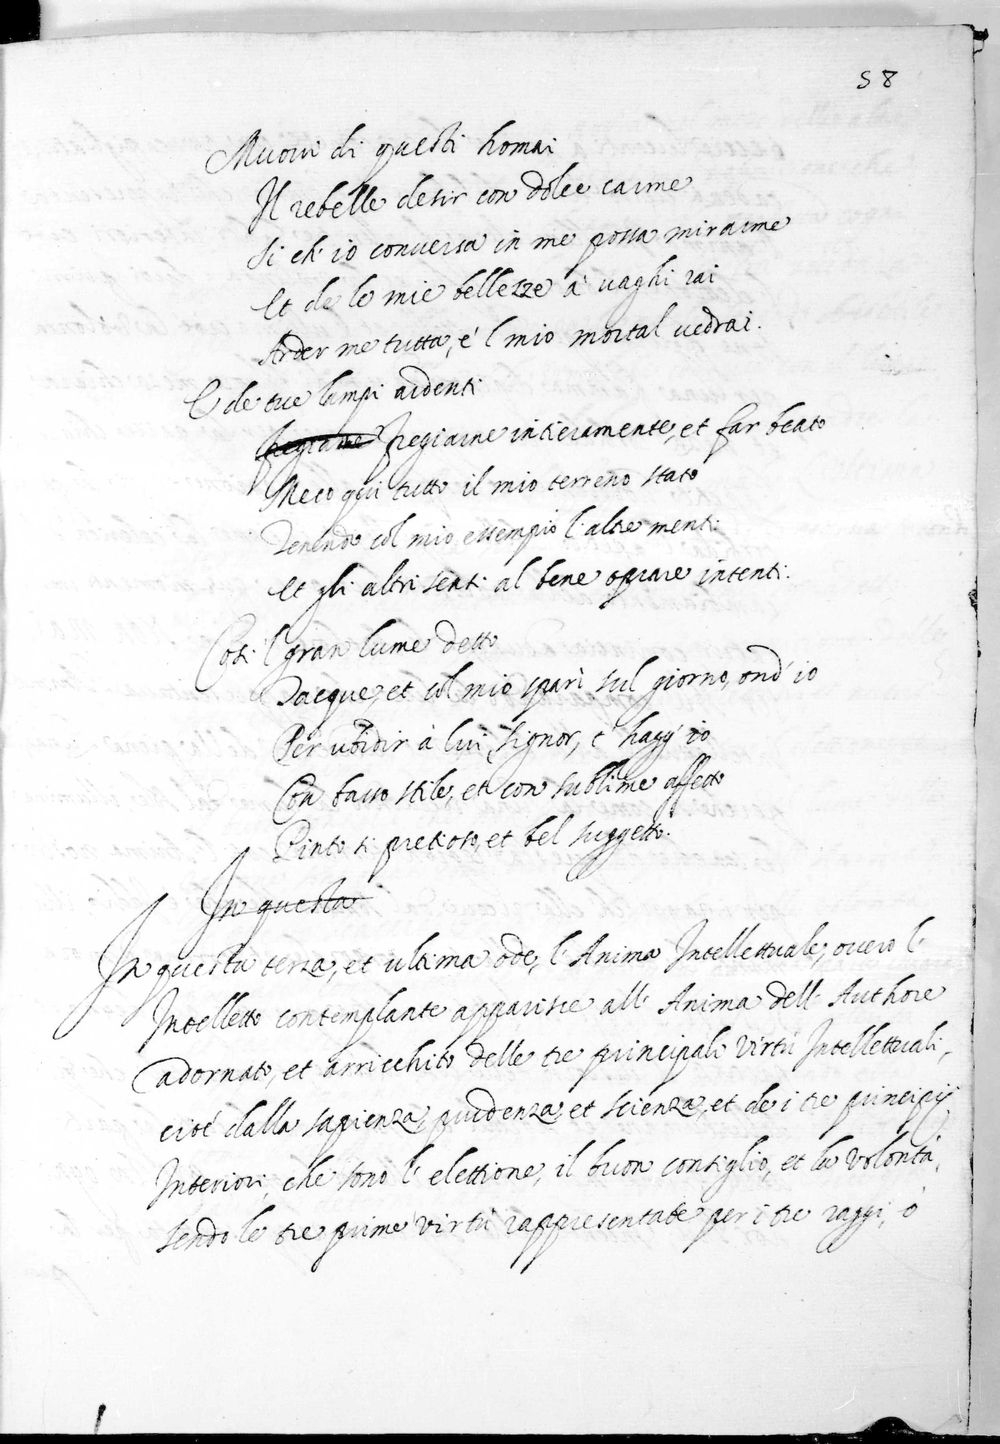 58
Muovi di questi homai
Il rebelle desir con dolce carme
Si ch' io conversa in me possa mirarme
Et de le mie bellezze a' vaghi rai
Arder me tutta, e' l mio mortal vedrai.
E de tue lampi ardenti
fregiarme fregiarme intieramente, et far beato
Meco qui tutto il mio terreno stato
Tenendo col mio essempio l' altre menti
Et gli altri senti al bene oprare intenti.
Cosi 'l gran lume detto
Tacque, et col mio sparì sul giorno, ond' io
Per ubidir à lui, signor, c' hagg' io
Con basso stile, et con sublime affetto
Pinto si pretioso, et bel suggetto.
In questa
In questa terza, et ultima ode, l' Anima Intellettuale, overo l'
Intelletto contemplante apparisce all' Anima dell' Authore
adornato, et arricchito delle tre principali virtù Intellettuali,
cioè dalla sapienza, prudenza, et scienza, et de i tre principij
Interiori, che sono l' elettione, il buon consiglio, et la volontà,
sendo le tre prime virtù rappresentate per i tre raggi, ò